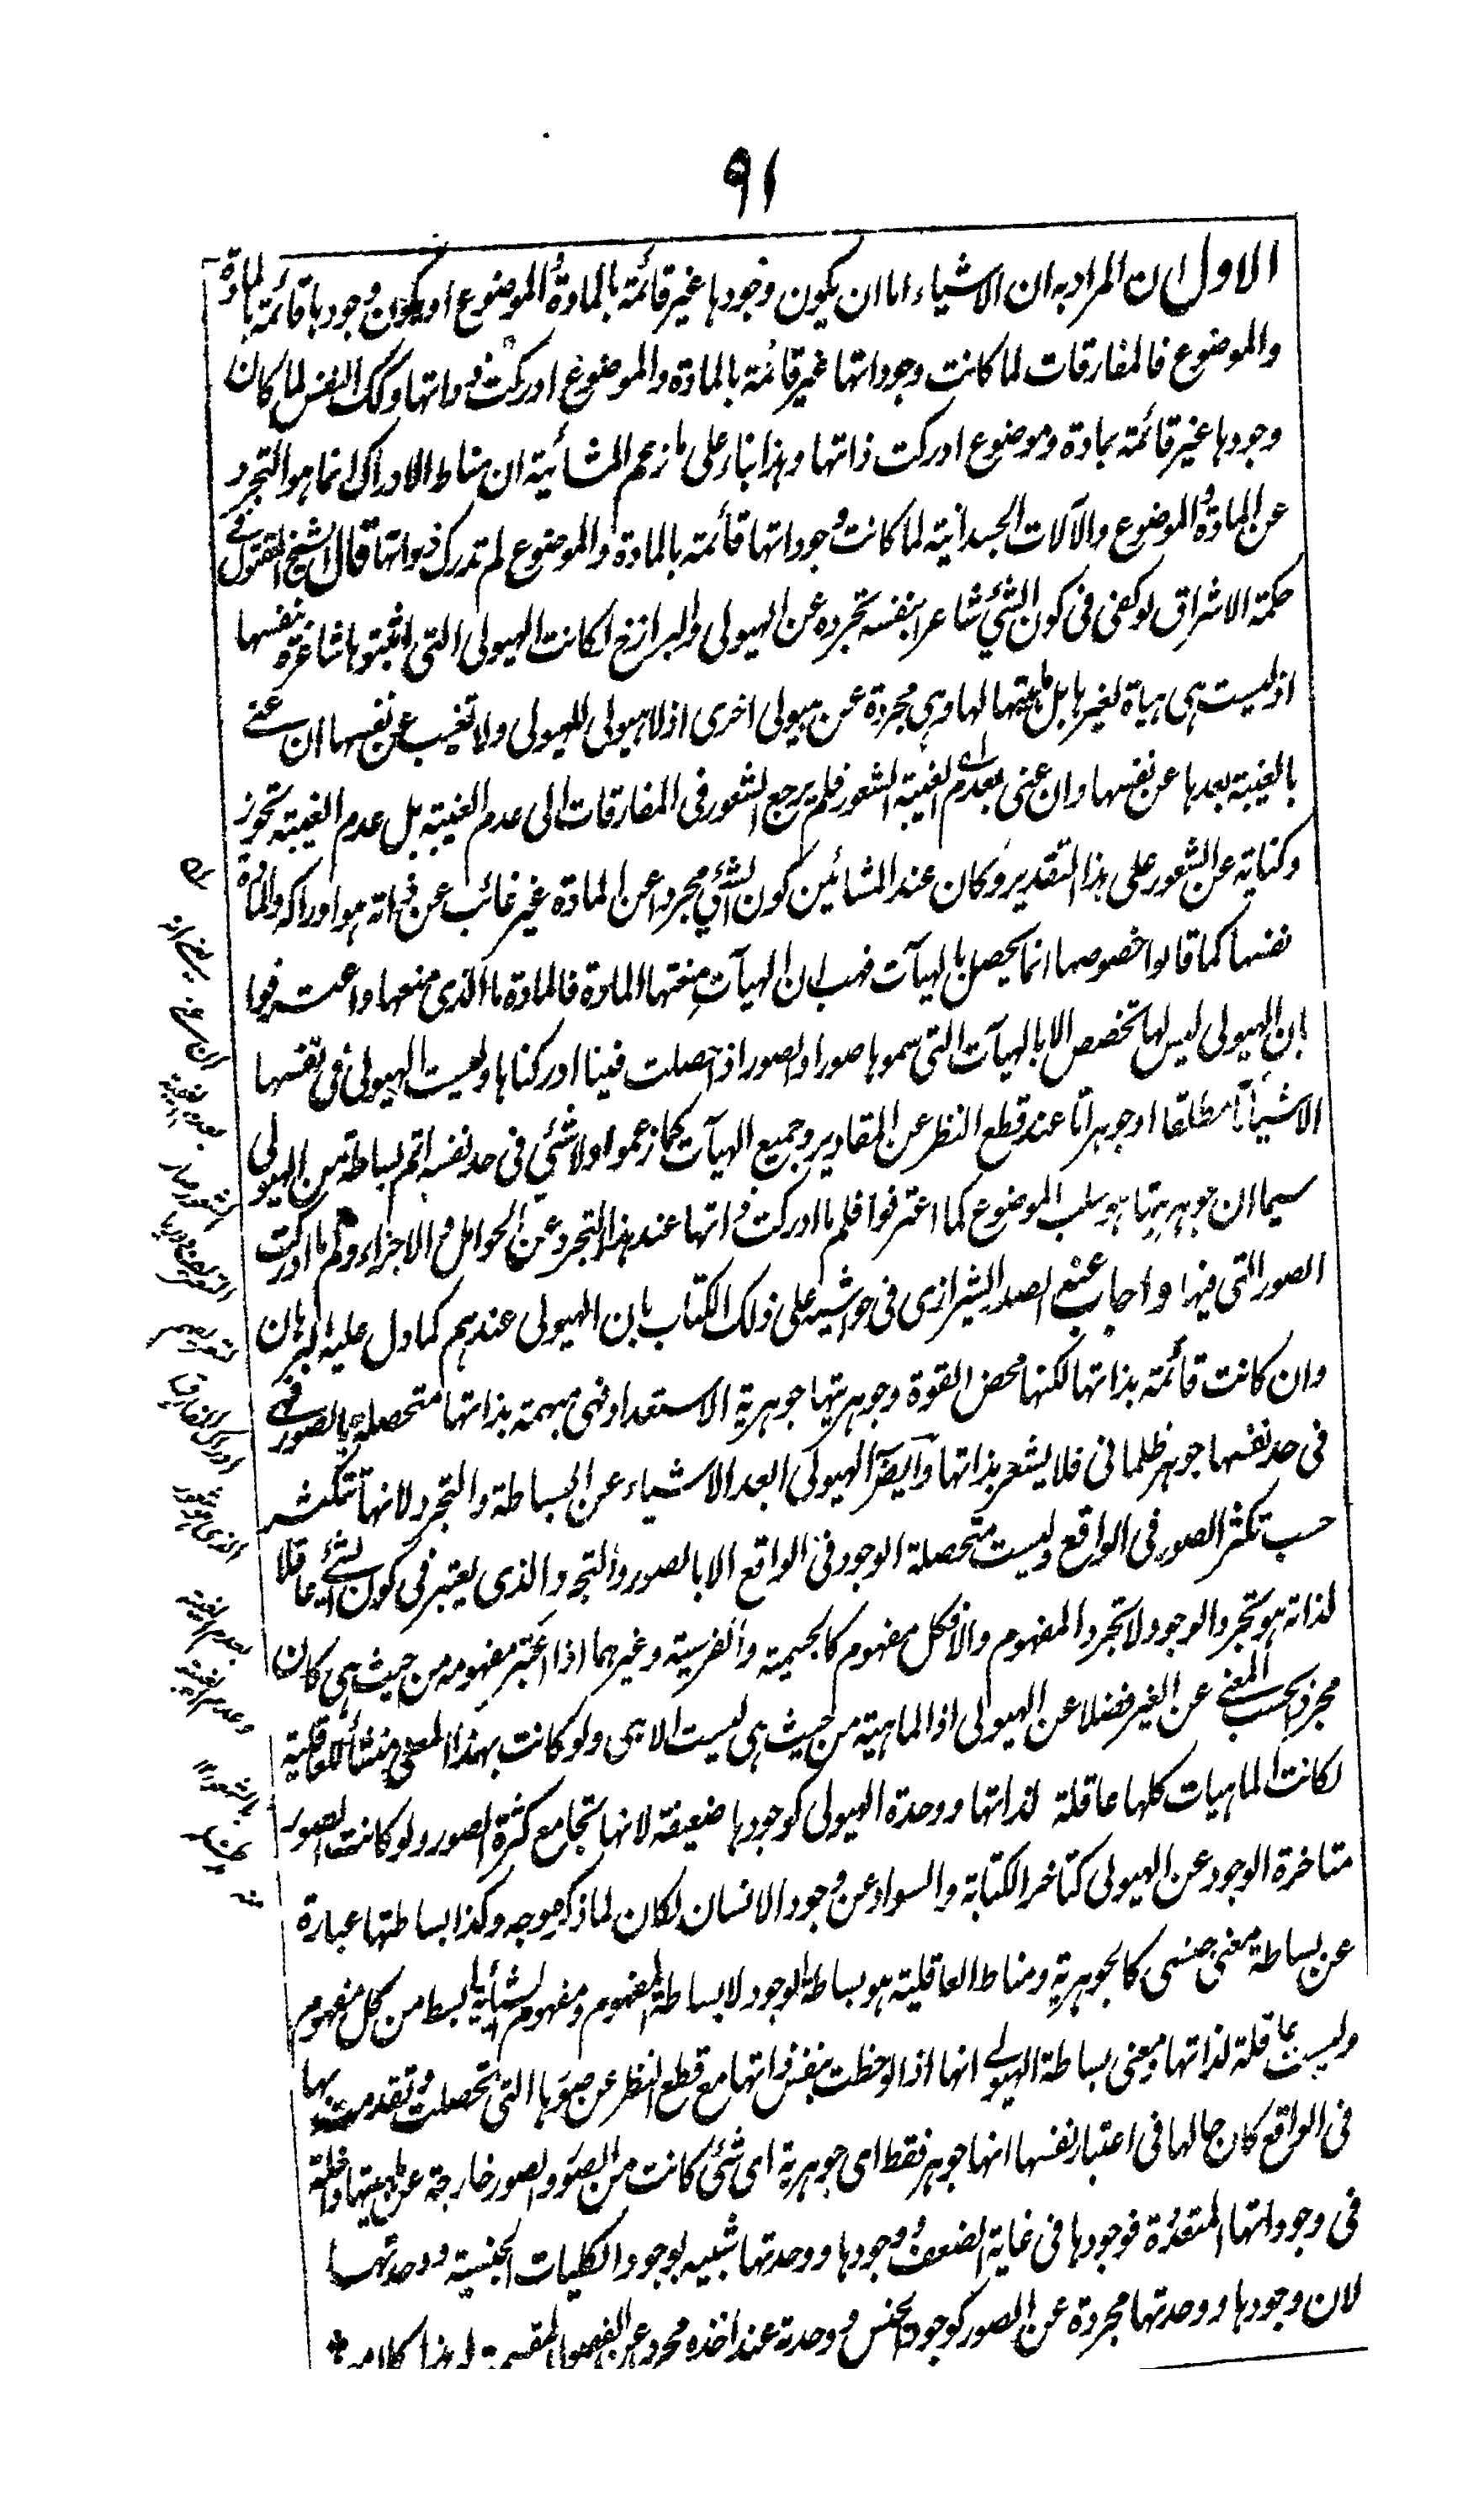 ٩١
الاول ان المراد به ان الاشياء اما ان يكون وجودها غير قائمة بالمادة والموضوع او يكون وجودها قائمة بالمادة
والموضوع فالمفارقات لما كانت وجوداتها غير قائمة بالمادة والموضوع ادركت ذواتها وكك النفس لما كان
وجودها غير قائمة بمادة وموضوع ادركت ذاتها وهذا بناء على ما زعم المشائية ان مناط الادراك انما هو التجرد
عن المادة والموضوع والآلات الجسدانية لما كانت وجوداتها قائمة بالمادة والموضوع لم تدرك ذواتها قال الشيخ المقتول في
حكمة الاشراق لو كفى في كون الشئ شاعرا بنفسه تجرده عن الهيولى والبرازخ لكانت الهيولى التي اثبتوها شاعرة بنفسها
اذ ليست هي هيأة لغيرها بل ماهيتها لها وهي مجردة عن هيولى اخرى اذ لا هيولى للهيولى ولا تغيب عن نفسها ان عنى
بالغيبة بعدها عن نفسها وان عنى بعدم الغيبة الشعور فلم يرجع الشعور في المفارقات الى عدم الغيبة بل عدم الغيبة تجوز
وكناية عن الشعور على هذا التقدير وكان عند المشائين كون الشئ مجردا عن المادة غير غائب عن ذاته هو ادراكه والمادة
نفسها كما قالوا خصوصها انما يحصل بالهيآت فهب ان الهيآت منعتها المادة فالمادة ما الذى منعها واعترفوا
بان الهيولى ليس لها تخصص الا بالهيآت التي سموها صورا والصور اذا حصلت فينا ادركناها وليست الهيولى في نفسها
الا شيأ ما مطلقا او جوهرا ما عند قطع النظر عن المقادير وجميع الهيآت كما زعموا ولا شئ في حد نفسه اتم بساطة من الهيولى
سيما ان جوهريتها هو سلب الموضوع كما اعترفوا فلم ما ادركت ذاتها عند هذا التجرد عن الحوامل والاجزاء ولم ما ادركت
الصور التي فيها واجاب عنه الصدر الشيرازى في حواشيه على ذلك الكتاب بان الهيولى عندهم كما دل عليه البرهان
وان كانت قائمة بذاتها لكنها محض القوة وجوهريتها جوهرية الاستعداد فهي مبهمة بذاتها متحصلة بالصور فهي
في حد نفسها جوهر ظلماني فلا يشعر بذاتها وايضا الهيولى ابعد الاشياء عن البساطة والتجرد لانها تتكثر
حسب تكثر الصور في الواقع وليست متحصلة الوجود في الواقع الا بالصور والتجرد الذى يعتبر في كون الشئ عاقلا
لذاته هو تجرد الوجود لا تجرد المفهوم والا فكل مفهوم كالجسمية والفرسية وغيرهما اذا اعتبر مفهومه من حيث هي كان
مجردا بحسب المعنى عن الغير فضلا عن الهيولى اذ الماهية من حيث هي ليست الا هي ولو كانت بهذا المعنى منشأ للعاقلية
لكانت الماهيات كلها عاقلة لذاتها ووحدة الهيولى كوجودها ضعيفة لانها تجامع كثرة الصور ولو كانت الصور
متاخرة الوجود عن الهيولى كتاخر الكتابة والسواد عن وجود الانسان لكان لما ذكره وجه وكذا بساطتها عبارة
عن بساطة معنى جنسى كالجوهرية ومناط العاقلية هو بساطة الوجود لا بساطة المفهوم ومفهوم الشيأية ابسط من كل مفهوم
وليست عاقلة لذاتها ومعنى بساطة الهيولى انها اذا لوحظت بنفس ذاتها مع قطع النظر عن صورها التي تحصلت وتقدمت بها
في الواقع كان حالها في اعتبار نفسها انها جوهر فقط اى جوهرية اى شئ كانت من الصور والصور خارجة عن ماهيتها داخلة
في وجوداتها المتعددة فوجودها في غاية الضعف وجودها ووحدتها شبيه بوجود الكليات الجنسية ووحدتها
لان وجودها ووحدتها مجردة عن الصور كوجود الجنس ووحدته عند اخذه مجردا عن الفصول المقسمة له هذا كلامه
يعنى انه
ان عنى
بعدم الغيبة
الشعور صار
ادراك المفارقات
بعدم الغيبة
وعدم الغيبة
بالشعور
منه